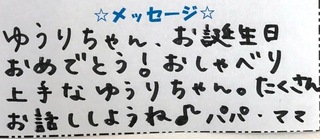 ☆メッセージ☆
ゆうりちゃん、お誕生日
おめでとう!おしゃべり
上手なゆうりちゃん。たくさん
お話ししようね♪パパ・ママ